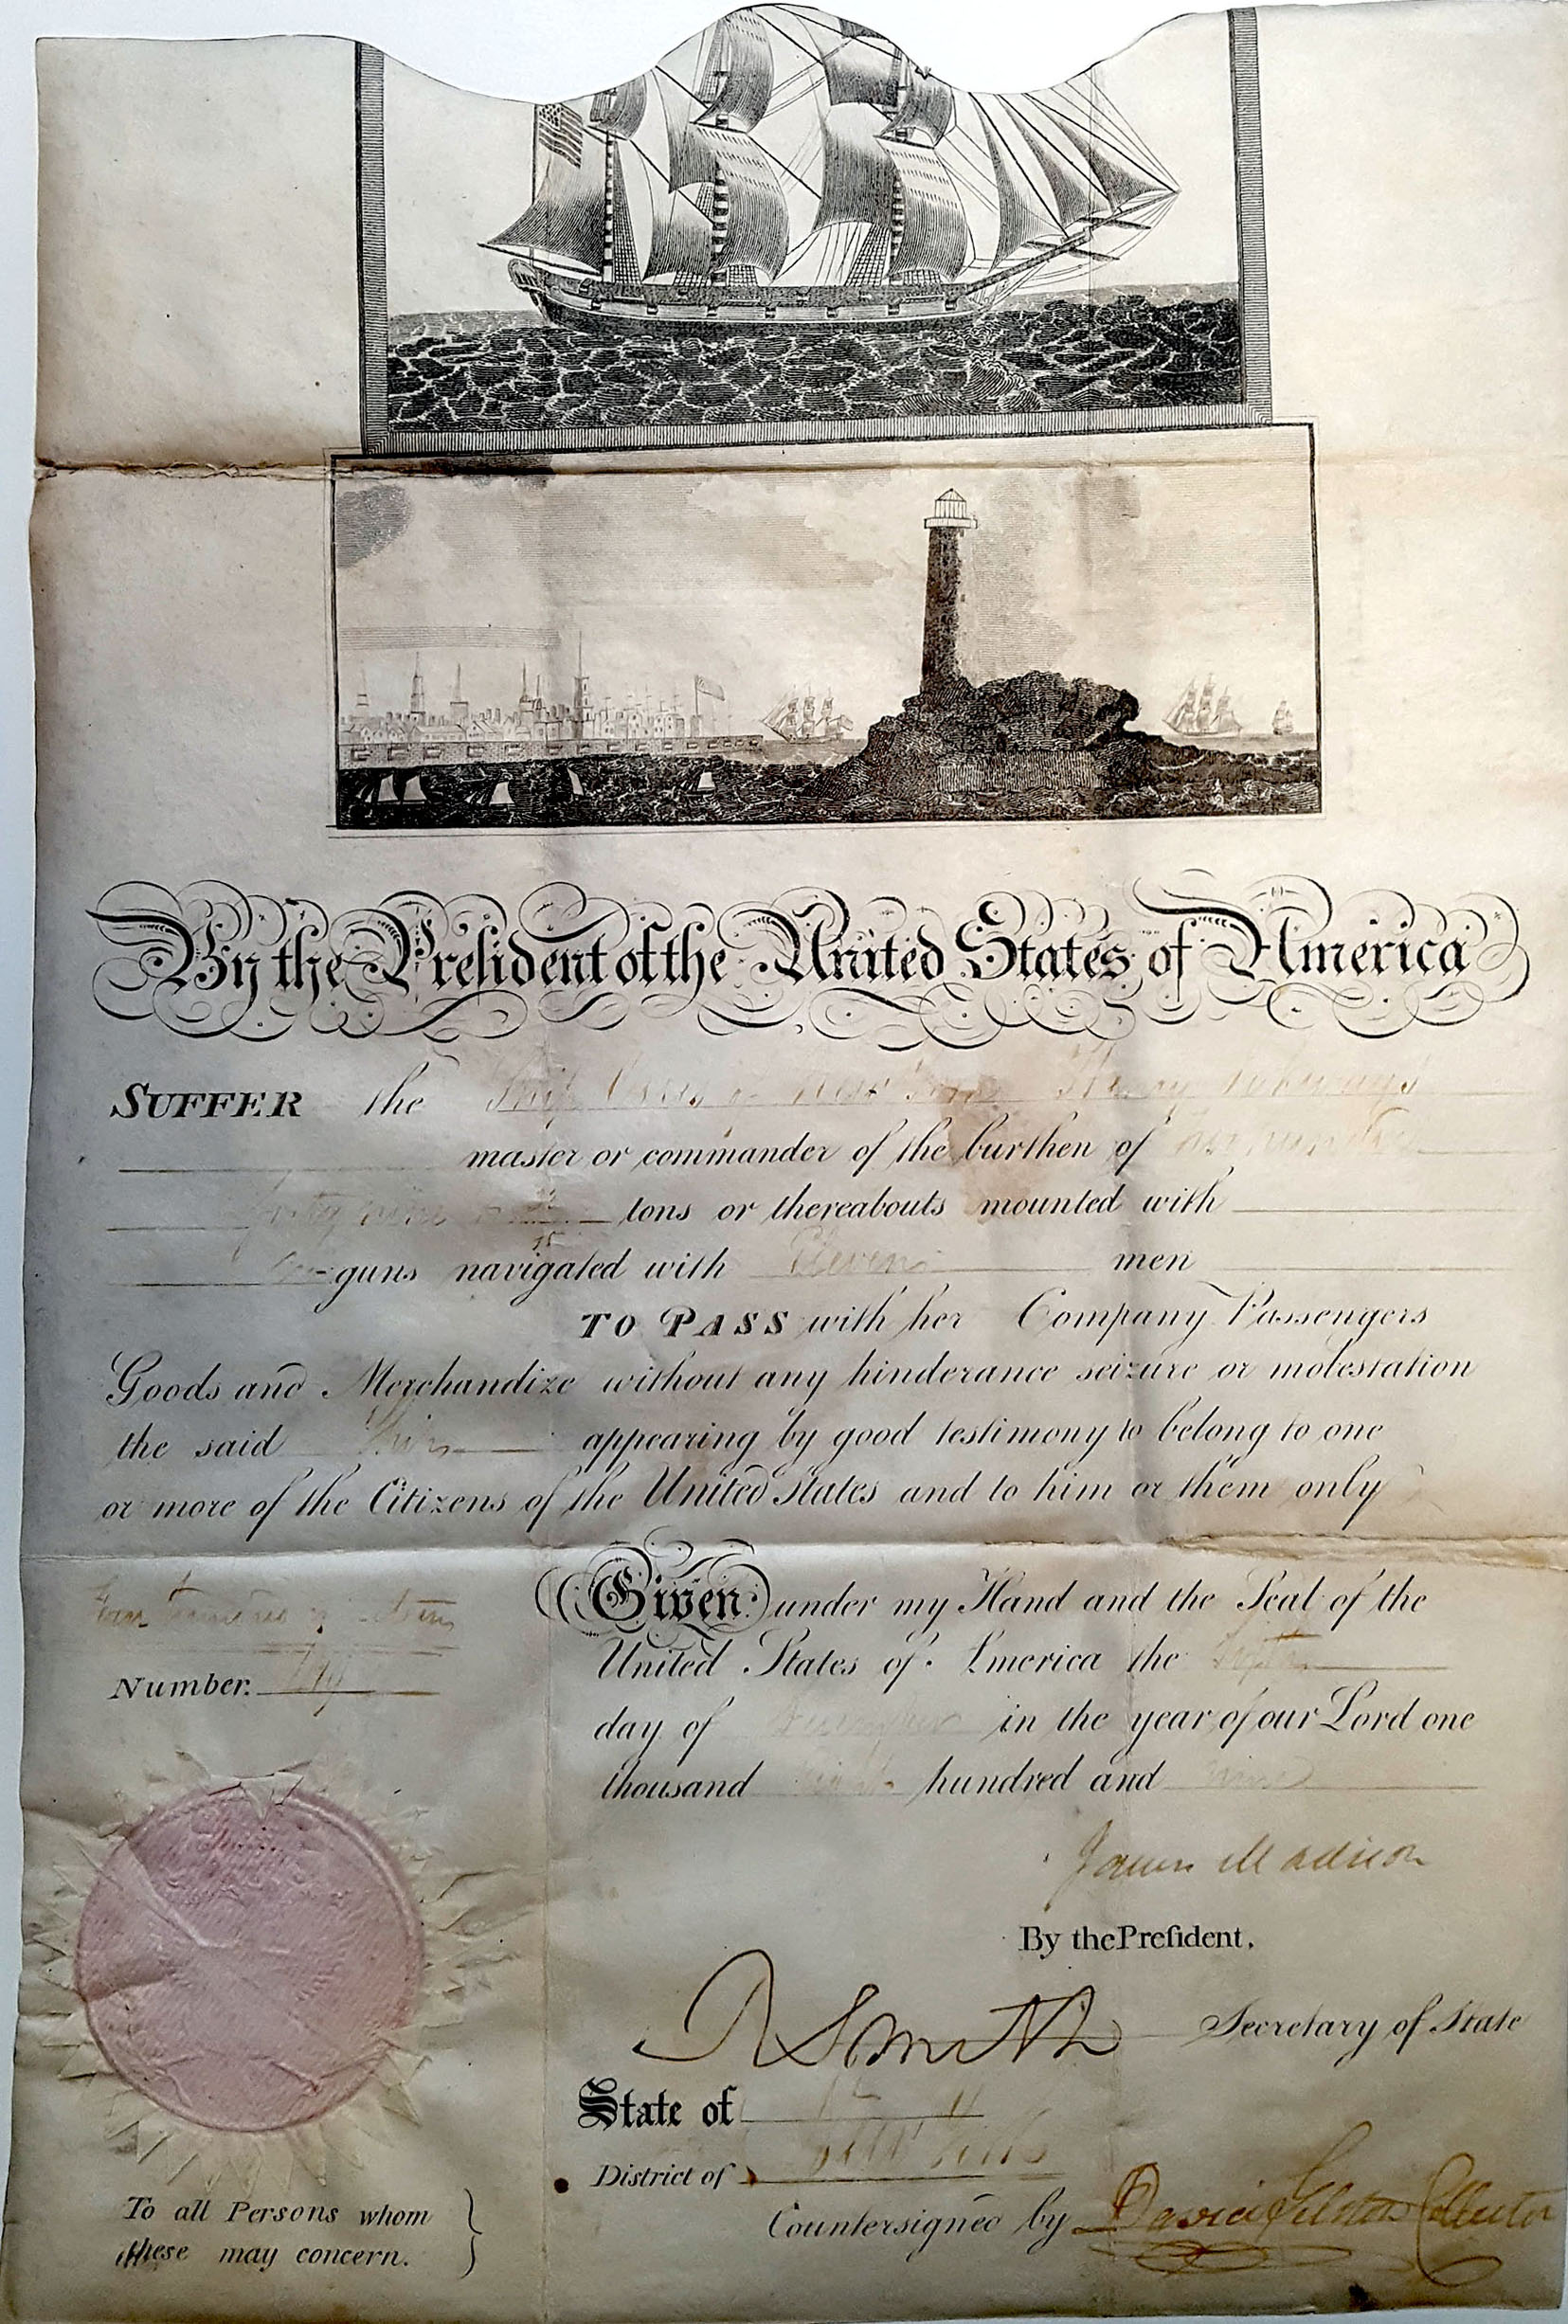 By the Preſident of the United States of America
SUFFER the Ship of New York Henry
master or commander of the burthen of hundred
forty nine tons or thereabouts mounted with
guns navigated with Eleven men
TO PASS with her Company Passengers
Goods and Merchandize without any hinderance seizure or molestation
the said Ship appearing by good testimony to belong to one
or more of the Citizens of the United States and to him or them only
Given under my Hand and the Seal of the
United States of America the
Number.
day of in the year of our Lord one
thousand eight hundred and nine
James Madison
By the Preſident,
R Smith Secretary of State
State of
District of New York
Countersigned by David Gelston Collector
To all Persons whom
these may concern.